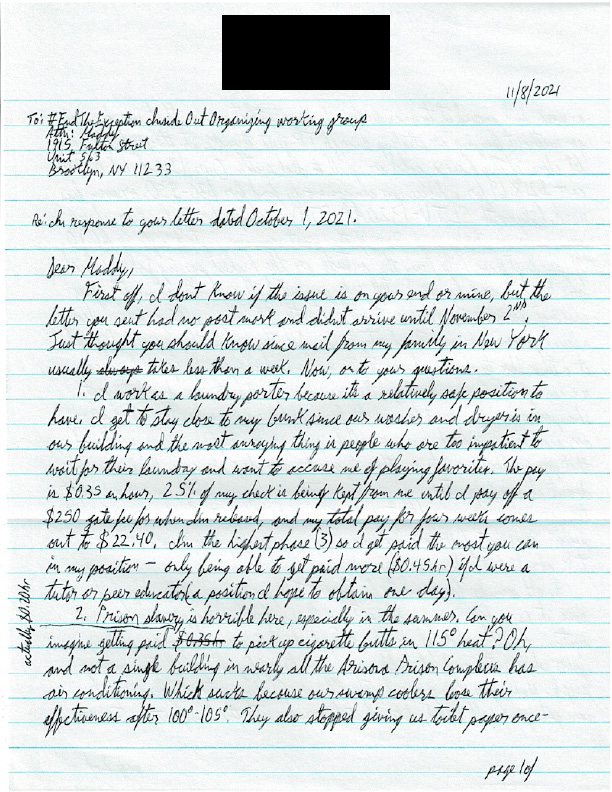 11/8/2021
To: #EndTheException Inside Out Organizing working group
Attn: Maddy
1915 Fulton Street
Unit 563
Brooklyn, NY 11233
Re: In response to your letter dated October 1, 2021.
Dear Maddy,
First off, I dont know if the issue is on your end or mine, but the
letter you sent had no post mark and didnt arrive until November 2ND.
Just thought you should know since mail from my family in New York
usually always takes less than a week. Now, on to your questions.
1. I work as a laundry porter because its a relatively safe position to
have. I get to stay close to my bunk since our washer and dryer is in
our building and the most annoying thing is people who are too impatient to
wait for their laundry and want to accuse me of playing favorites. The pay
is $0.35 an hour, 25% of my check is being kept from me until I pay off a
$250 gate fee for when Im released, and my total pay for four weeks comes
out to $22.40. Im the highest phase (3) so I get paid the most you can
in my position – only being able to get paid more ($0.45hr) if I were a
tutor or peer educator (a position I hope to obtain one day).
2. Prison slavery is horrible here, especially in the summer. Can you
imagine getting paid $0.35hr to pick up cigarette butts in 115° heat? Oh,
actually $0.20hr
and not a single building in nearly all the Arizona Prison Complexes has
air conditioning. Which sucks because our swamp coolers lose their
effectiveness after 100°-105°. They also stopped giving us toilet paper once-
page 1 of